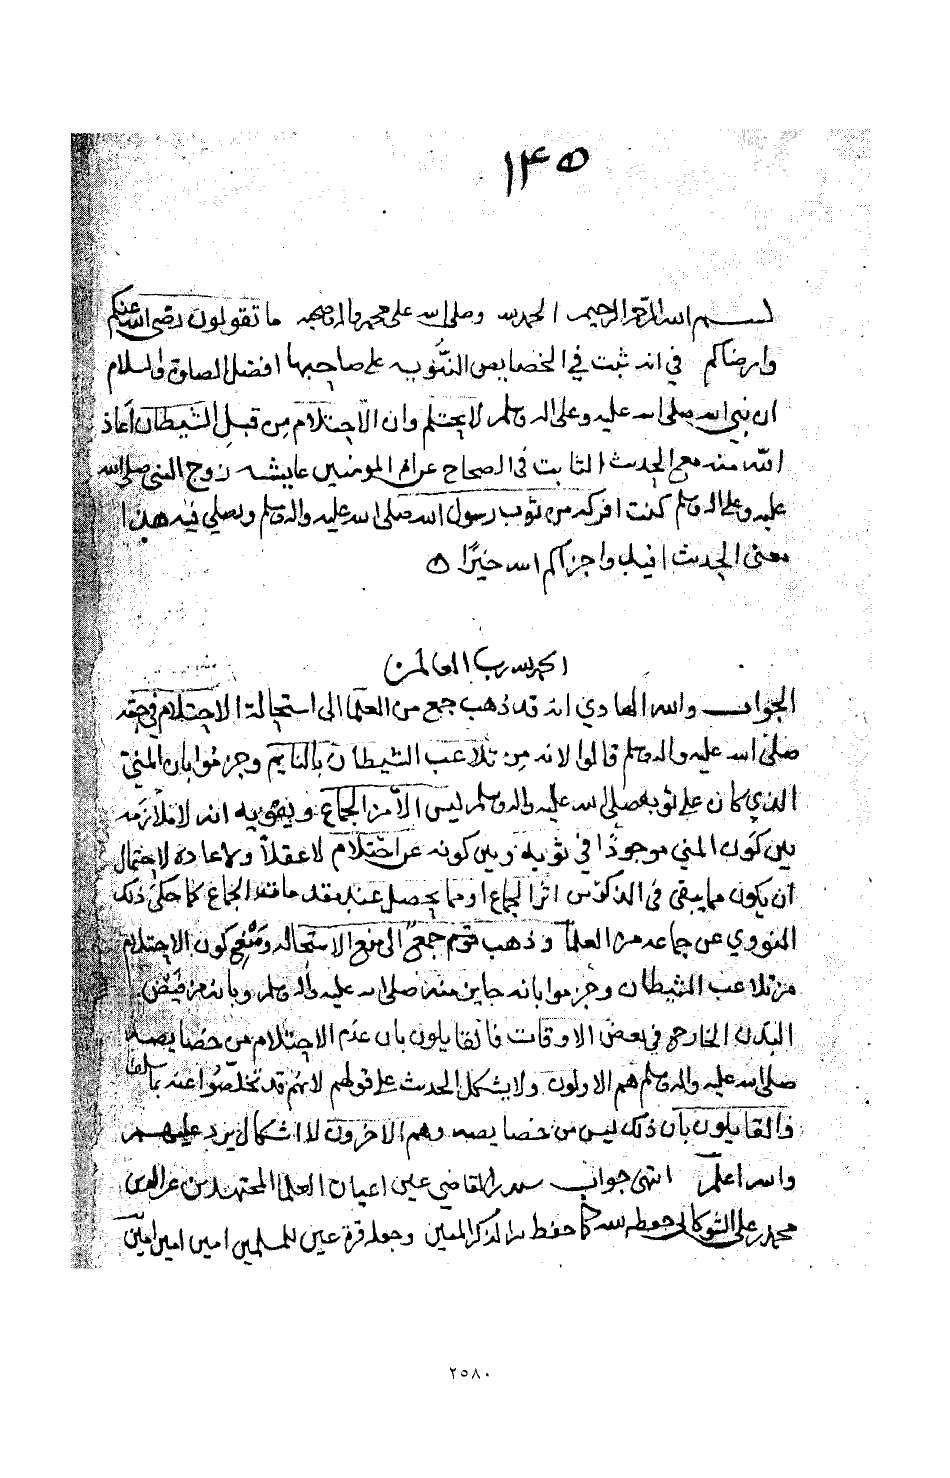 ١٤٥
بسم الله الرحمن الرحيم الحمد لله وصلى الله على محمد واله وصحبه ما تقولون رضي الله عنكم
وارضاكم في انه ثبت في الخصايص النبويه على صاحبها افضل الصلوة والسلام
ان نبي الله صلى الله عليه وعلى اله وسلم لا يحتلم وان الاحتلام من قبل الشيطان اعاذ
الله منه مع الحديث الثابت في الصحاح عن ام المومنين عايشه زوج النبي صلى الله
عليه وعلى اله وسلم كنت افركه من ثوب رسول الله صلى الله عليه واله وسلم ويصلي فيه هذا
معنى الحديث افيدوا جزاكم الله خيرًا
الحمد لله رب العالمين
الجواب والله الهادي انه قد ذهب جمع من العلما الى استحالة الاحتلام في حقه
صلى الله عليه واله وسلم قالوا لانه من تلاعب الشيطان بالنايم وجزموا بان المني
الذي كان على ثوبه صلى الله عليه واله وسلم ليس الا من الجماع ويقويه انه لا ملازمه
بين كون المني موجودًا في ثوبه وبين كونه عن احتلام لا عقلاً ولا عادة لاحتمال
ان يكون مما يبقى في الذكر من اثر الجماع او مما يحصل عند مقدمات الجماع كما حكى ذلك
النووي عن جماعه من العلما وذهب قوم جمع الى منع الاستحاله ومنع كون الاحتلام
من تلاعب الشيطان وجزموا بانه جايز منه صلى الله عليه واله وسلم وبانه من فيض
البدن الخارج في بعض الاوقات فالقايلون بان عدم الاحتلام من خصايصه
صلى الله عليه واله وسلم هم الاولون ولا يشكل الحديث على قولهم لانهم قد تخلصوا عنه بما سلف
والقايلون بان ذلك ليس من خصايصه وهم الاخرون لا اشكال يرد عليهم
والله اعلم انتهى جواب سيدنا القاضي عين اعيان العلما المجتهدين عز الدين
محمد بن علي الشوكاني حفظه الله كما حفظ به الذكر المبين وجعله قرة عين للمسلمين امين امين امين
٢٥٨٠